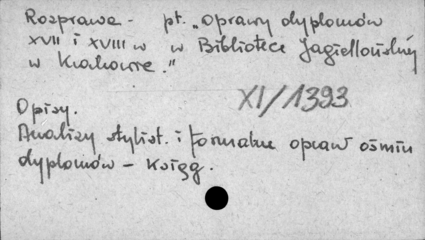 Rozprawa - pt. „Oprawy dyplomów
XVII i XVIII w w Bibliotece Jagiellońskiej
w Krakowie."
XI/1393
Opisy.
Analizy stylist. i formalne opraw ośmiu
dyplomów - ksiąg.